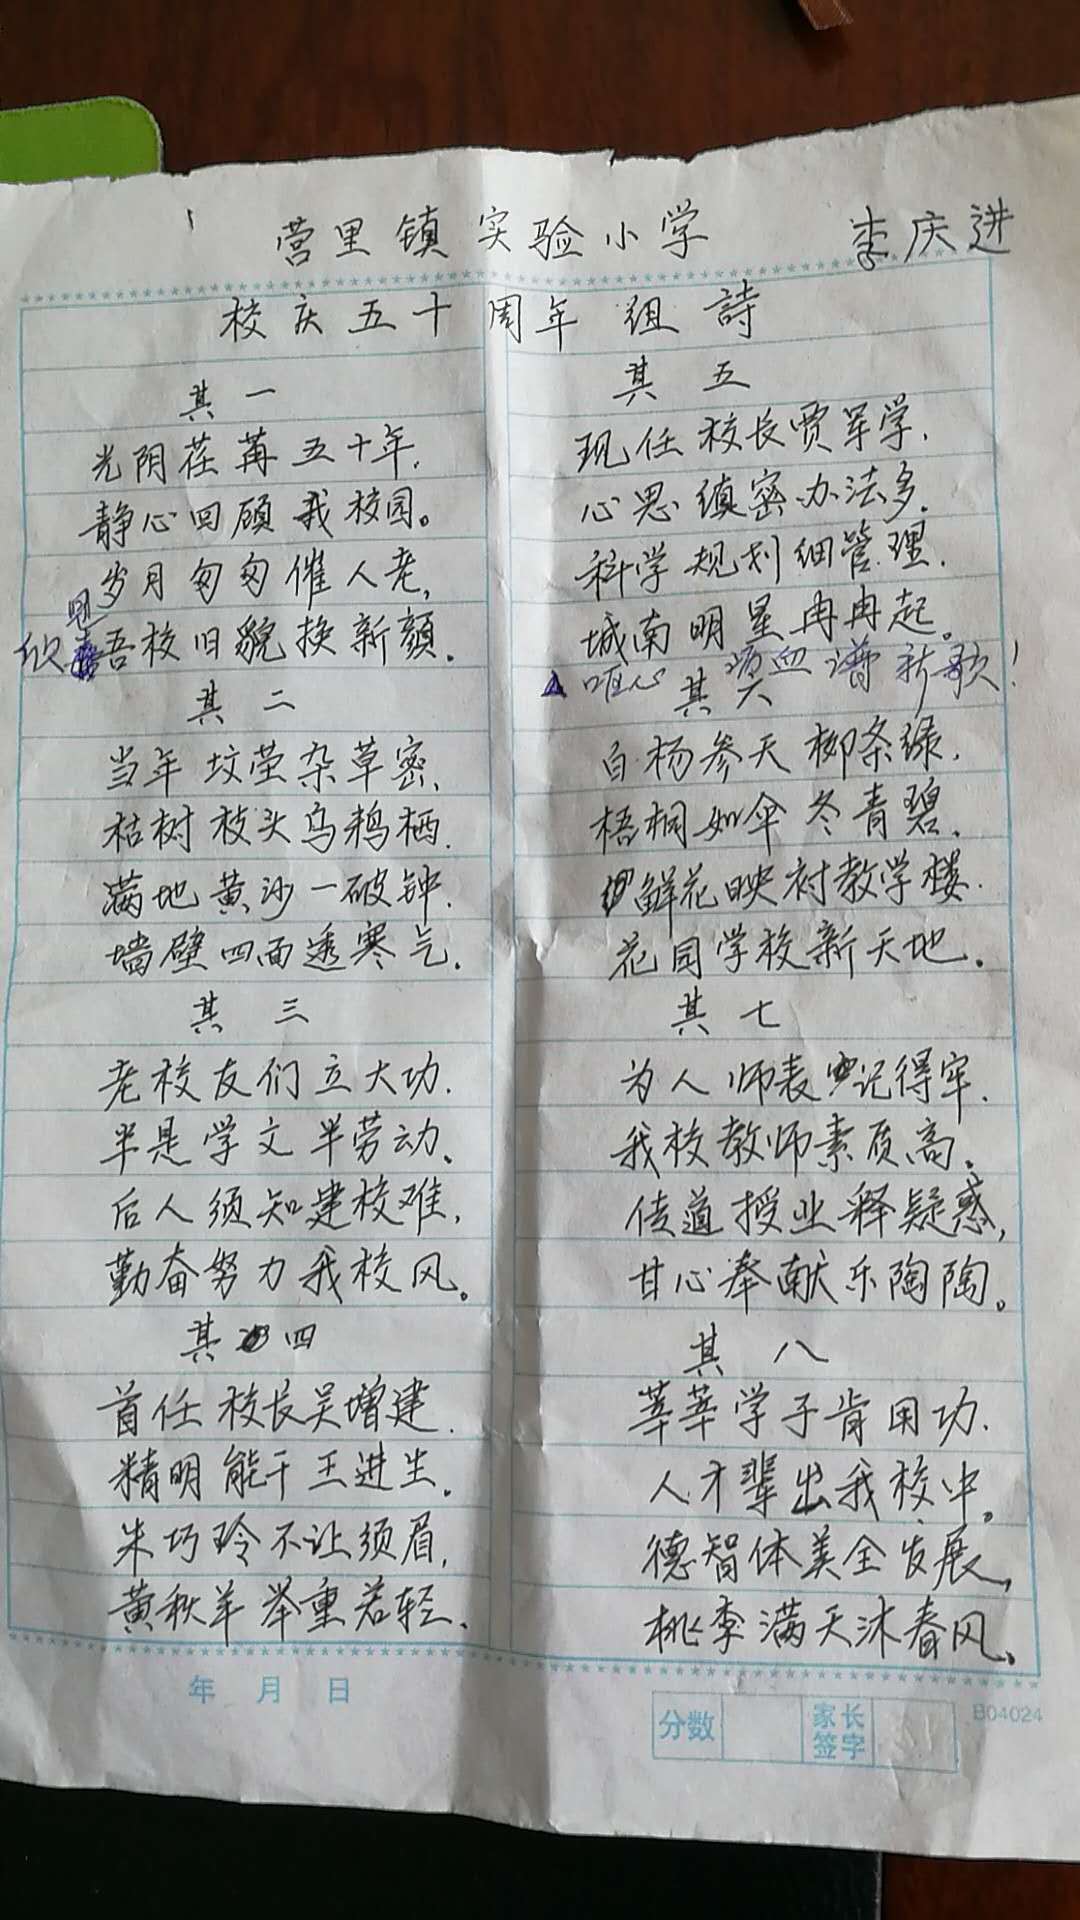 营里镇实验小学 李庆进
校庆五十周年组詩
其一
光阴荏苒五十年.
静心回顾我校园。
岁月匆匆催人老,
欣見吾校旧貌换新颜.
其二
当年坟茔杂草密.
枯树枝头乌鸦栖.
满地黄沙一破钟.
墙壁四面透寒气.
其三
老校友们立大功.
半是学文半劳动。
后人须知建校难,
勤奋努力我校风。
其四
首任校长吴增建.
精明能干王进生.
朱巧玲不让须眉,
黄秋羊举重若轻.
其五
现任校长贾军学.
心思缜密办法多.
科学规划细管理.
城南明星冉冉起。
咱心沥血谱新歌!
其六
白杨参天柳条绿.
梧桐如伞冬青碧.
鲜花映衬教学楼.
花园学校新天地.
其七
为人师表记得牢.
我校教师素质高。
传道授业释疑惑,
甘心奉献乐陶陶。
其八
莘莘学子肯用功.
人才辈出我校中。
德智体美全发展,
桃李满天沐春风。
年 月 日
分数 家长签字
B04024